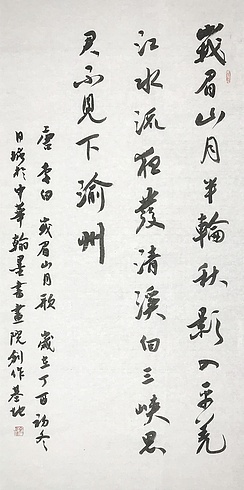 峩眉山月半輪秋影入平羌
江水流夜發清溪向三峽思
君不見下渝州
唐李白峩眉山月歌 歲在丁酉初冬
於中華翰墨書畫院創作基地